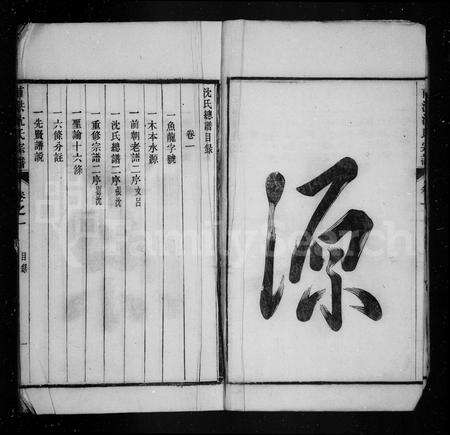 源
沈氏總譜目錄
卷一
一魚龍字號
一木本水源
一前朝老譜二序
一沈氏總譜二序
一重修宗譜二序
一聖諭十六條
一六條分註
一先賢譜說
沈氏宗譜
卷之一
目錄
FamilySearch